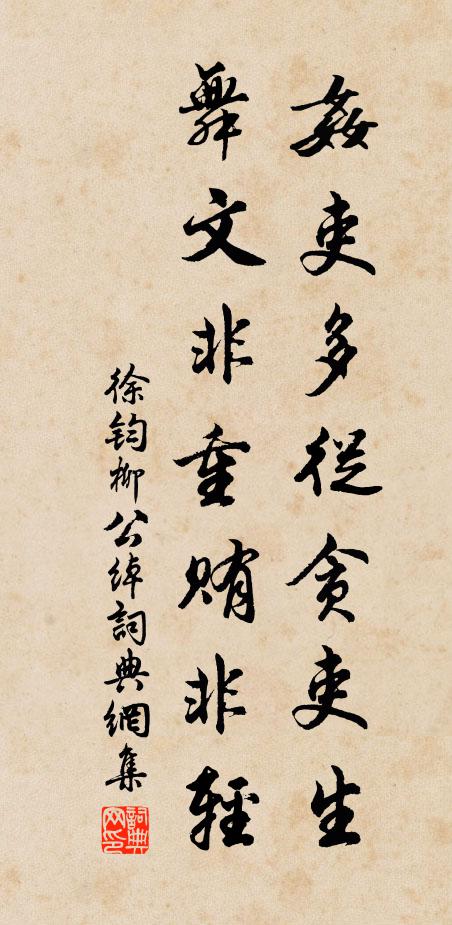 姦吏多從貪吏生
舞文非重賄非輕
徐鈞柳公綽詞典網集
詞典網印